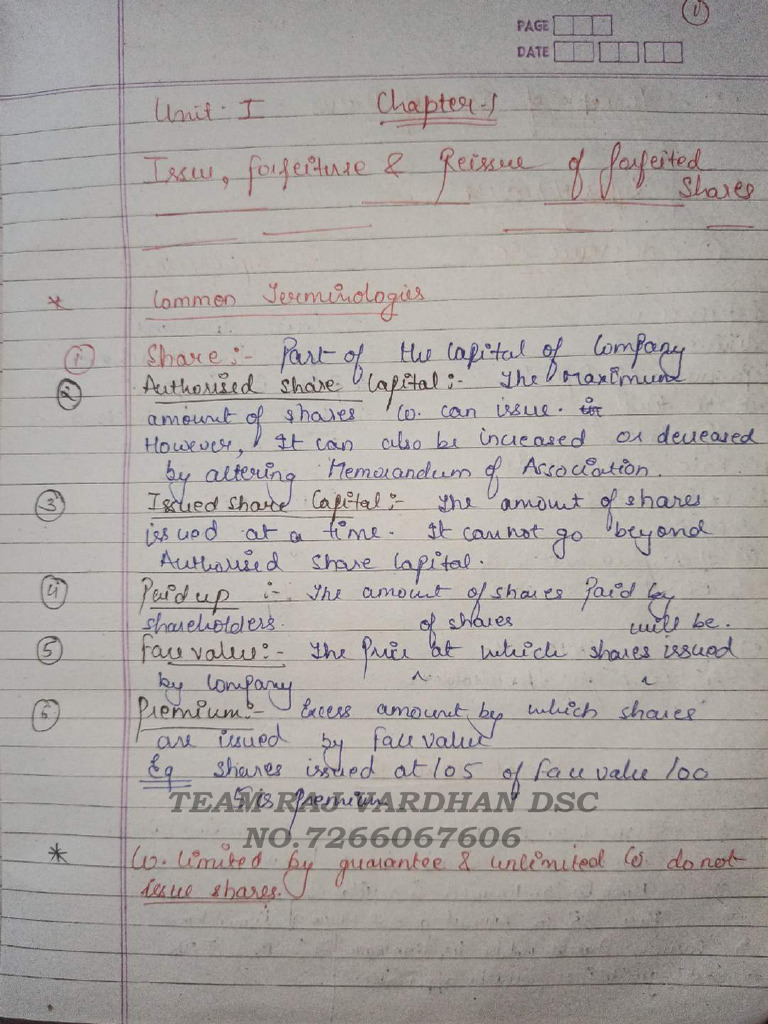 1
PAGE
DATE
Unit: I Chapter-1
Issue, forfeiture & Reissue of forfeited
Shares
* Common Terminologies
1 Share:- Part of the Capital of Company
2 Authorised share Capital:- The maximum
amount of shares Co. can issue.
However, It can also be increased or decreased
by altering Memorandum of Association.
3 Issued share Capital:- The amount of shares
issued at a time. It cannot go beyond
Authorised share Capital.
4 Paid up :- The amount of shares paid by
shareholders. of shares will be.
5 Face value:- The Price at which shares issued
by Company
6 Premium:- Excess amount by which shares
are issued by face value
Eg shares issued at 105 of face value 100
5 is premium
TEAM RAJ VARDHAN DSC
NO.7266067606
* Co. limited by guarantee & unlimited Co. do not
issue shares.